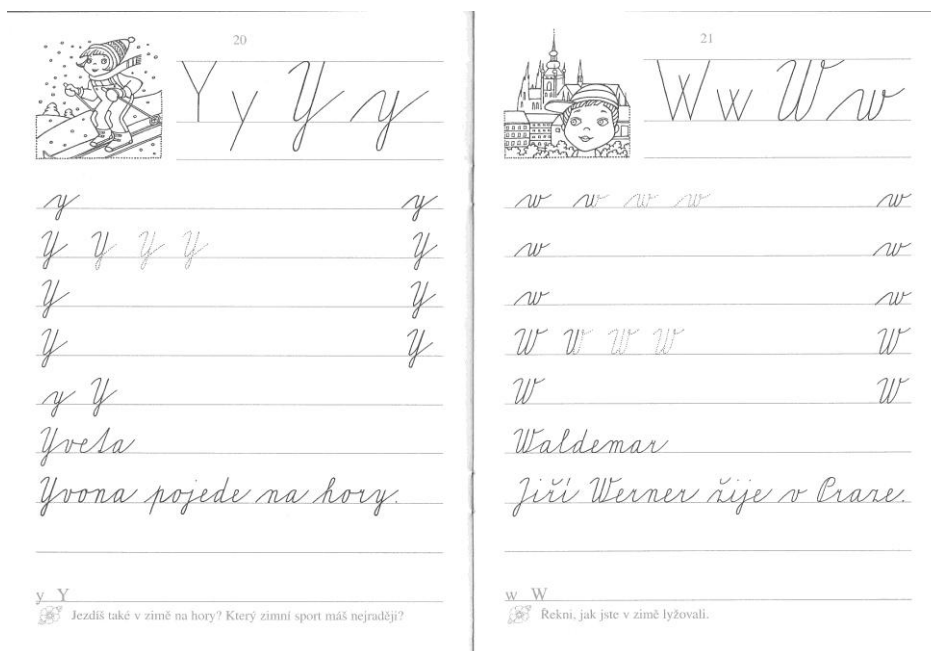 20
Y y Y y
y y
Y Y Y Y Y
Y Y
Y Y
y Y
Yveta
Yvona pojede na hory.
y Y
Jezdíš také v zimě na hory? Který zimní sport máš nejraději?
21
W w W w
w w w w w
w w
w w
W W W W W
W W
Waldemar
Jiří Werner žije v Praze.
w W
Řekni, jak jste v zimě lyžovali.